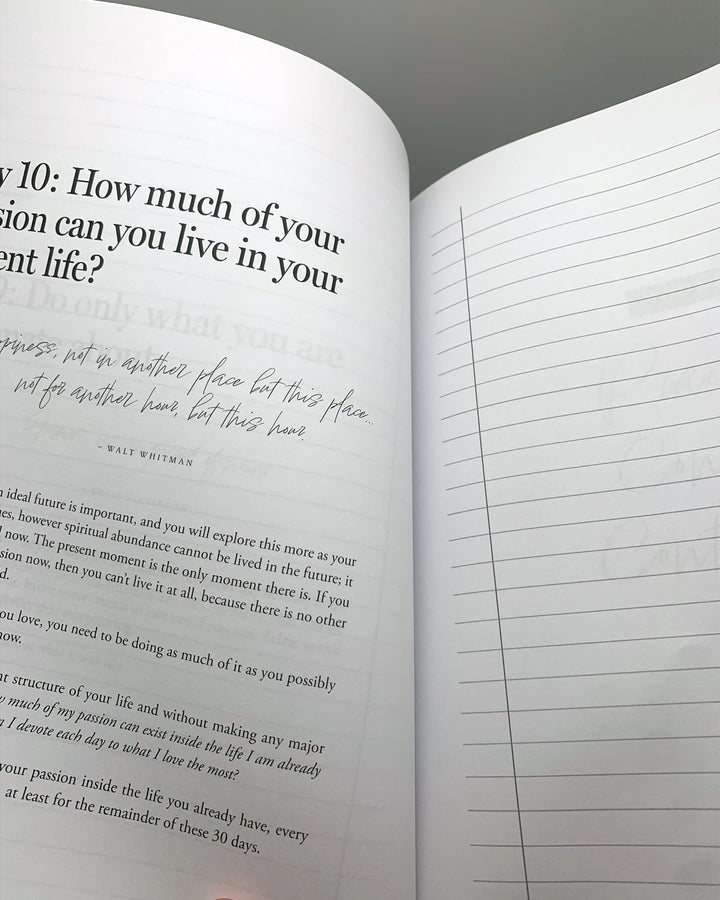 y 10: How much of your
sion can you live in your
ent life?
9: Do only what you are
piness, not in another place but this place...
not for another hour, but this hour.
– WALT WHITMAN
n ideal future is important, and you will explore this more as your
es, however spiritual abundance cannot be lived in the future; it
l now. The present moment is the only moment there is. If you
sion now, then you can't live it at all, because there is no other
d.
ou love, you need to be doing as much of it as you possibly
now.
nt structure of your life and without making any major
w much of my passion can exist inside the life I am already
n I devote each day to what I love the most?
your passion inside the life you already have, every
at least for the remainder of these 30 days.